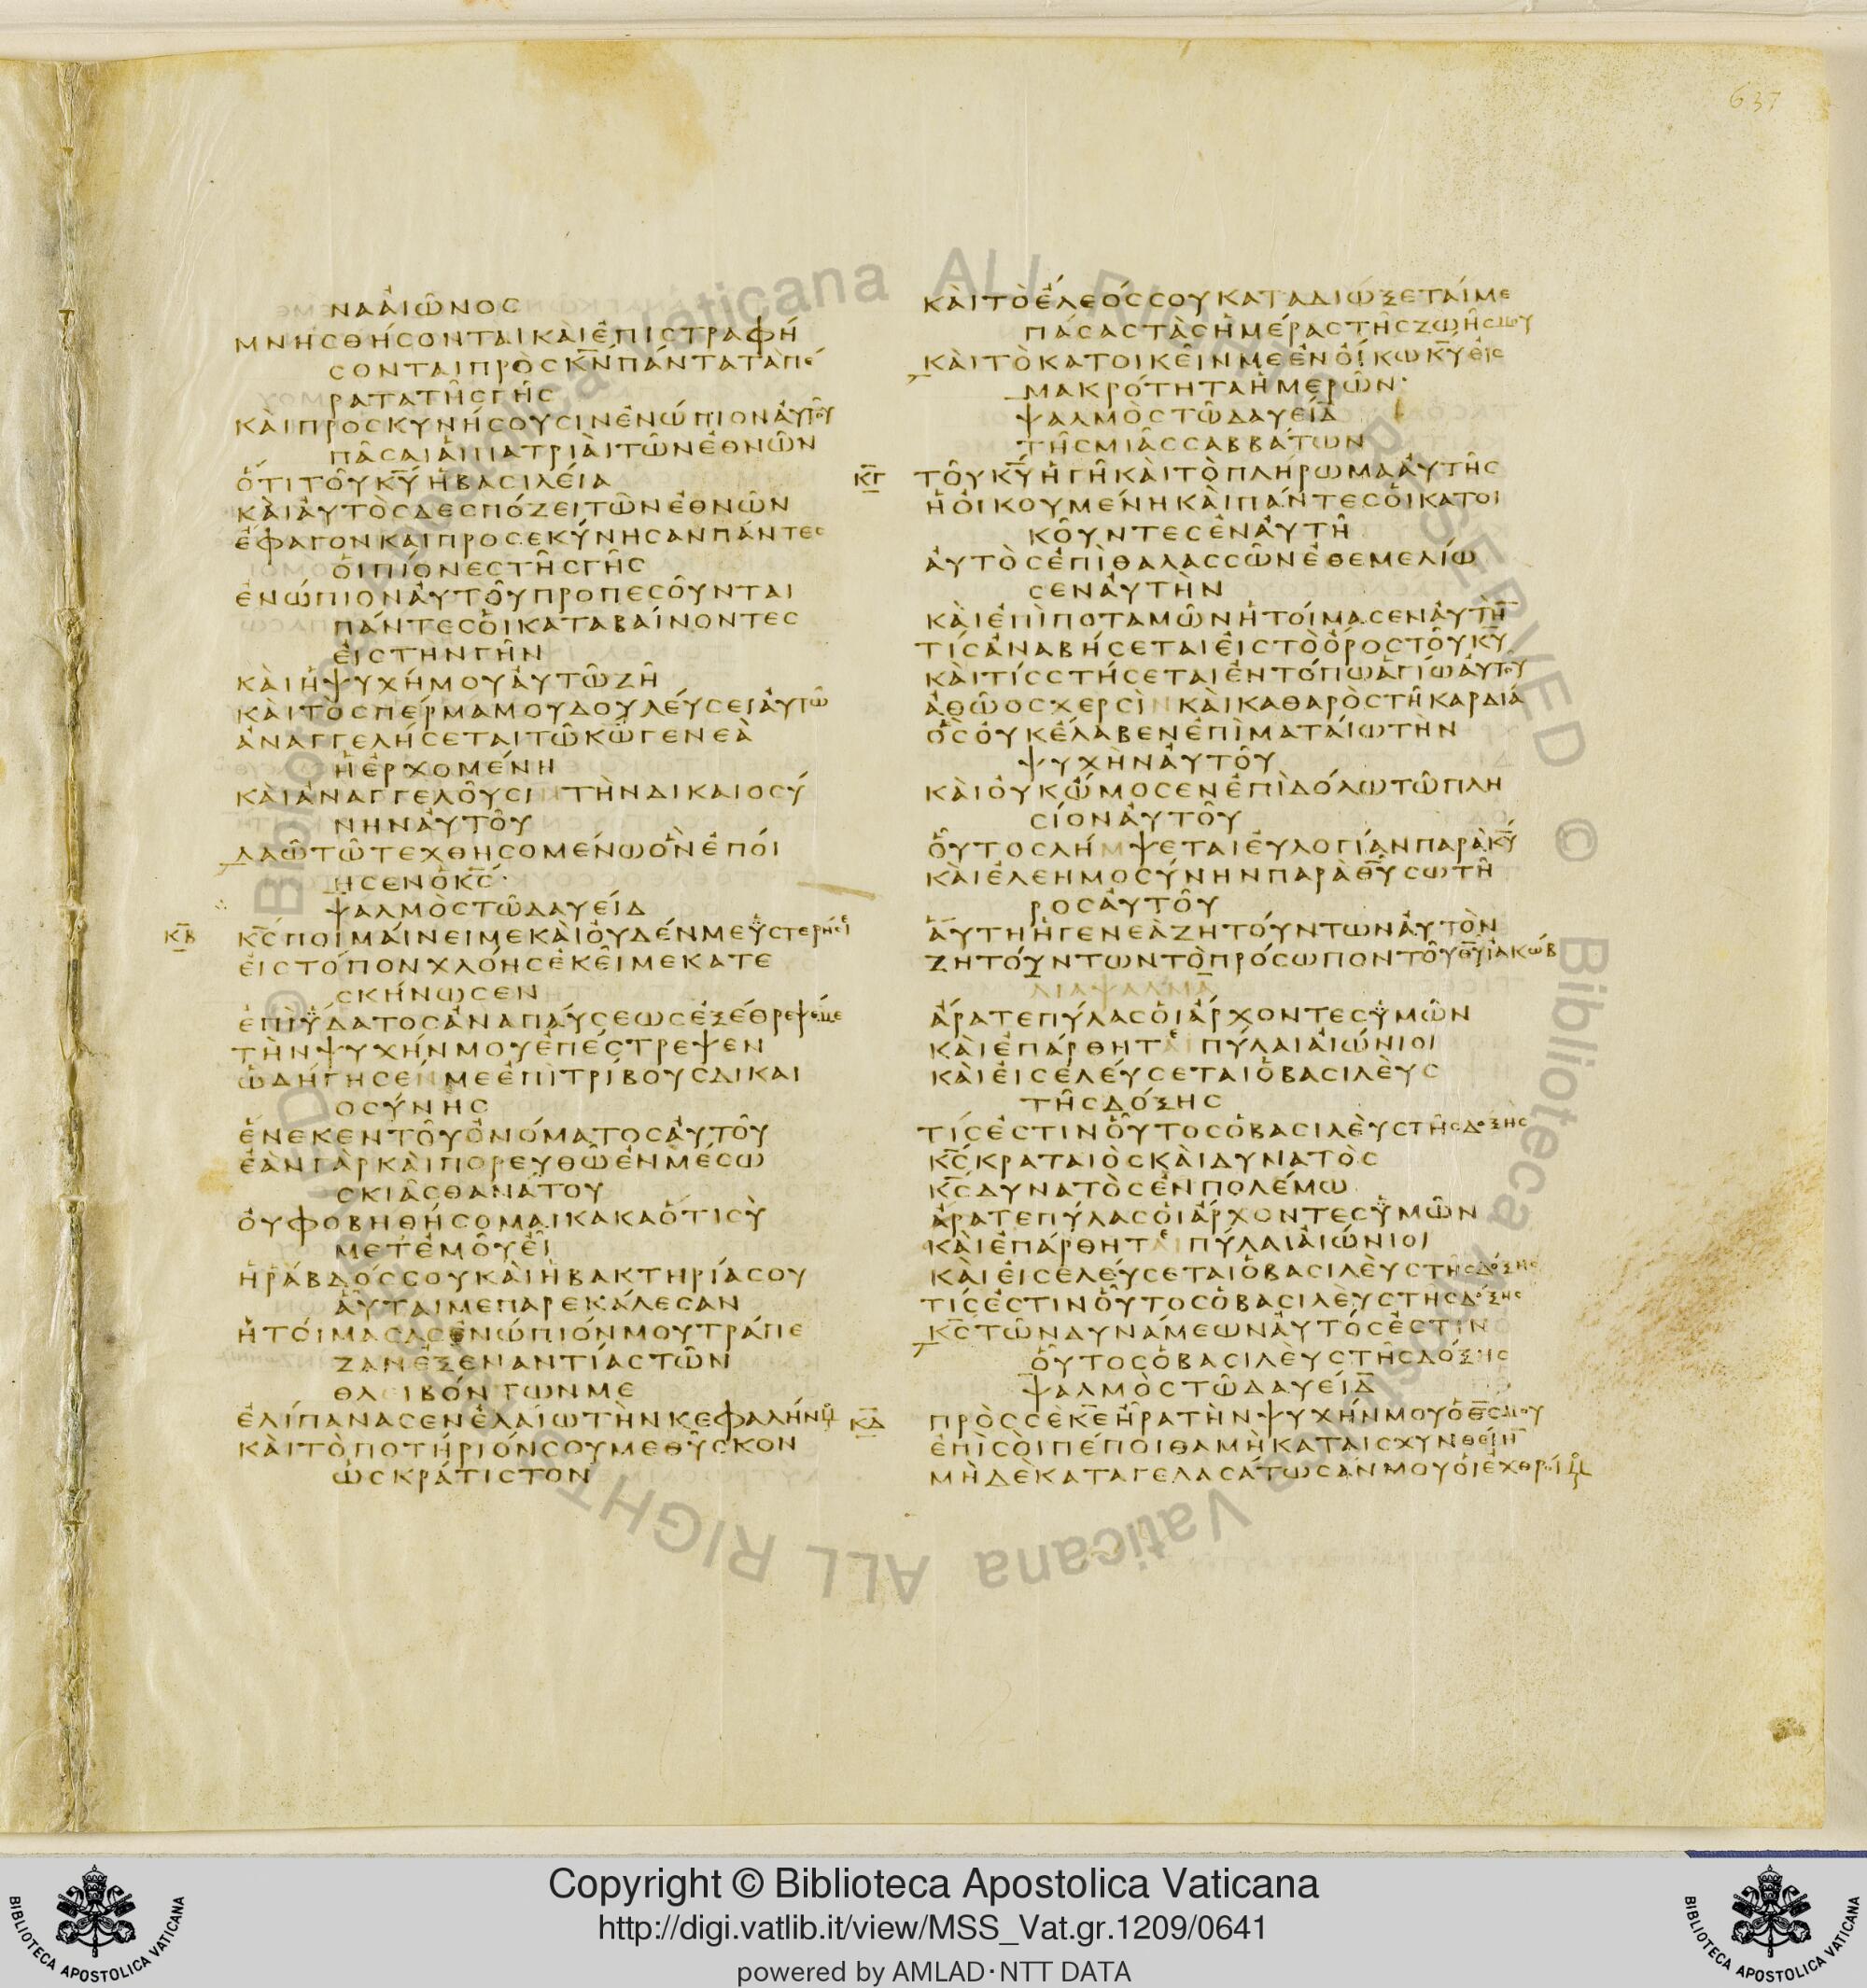 637
ΝΑΑΙΩΝΟϹ
ΜΝΗϹΘΗϹΟΝΤΑΙΚΑΙΕΠΙϹΤΡΑΦΗ
ϹΟΝΤΑΙΠΡΟϹΚΝ̅ΠΑΝΤΑΤΑΠΕ
ΡΑΤΑΤΗϹΓΗϹ
ΚΑΙΠΡΟϹΚΥΝΗϹΟΥϹΙΝΕΝΩΠΙΟΝΑΥΤΟΥ
ΠΑϹΑΙΑΙΠΑΤΡΙΑΙΤΩΝΕΘΝΩΝ
ΟΤΙΤΟΥΚΥ̅ΗΒΑϹΙΛΕΙΑ
ΚΑΙΑΥΤΟϹΔΕϹΠΟΖΕΙΤΩΝΕΘΝΩΝ
ΕΦΑΓΟΝΚΑΙΠΡΟϹΕΚΥΝΗϹΑΝΠΑΝΤΕϹ
ΟΙΠΙΟΝΕϹΤΗϹΓΗϹ
ΕΝΩΠΙΟΝΑΥΤΟΥΠΡΟΠΕϹΟΥΝΤΑΙ
ΠΑΝΤΕϹΟΙΚΑΤΑΒΑΙΝΟΝΤΕϹ
ΕΙϹΤΗΝΓΗΝ
ΚΑΙΗΨΥΧΗΜΟΥΑΥΤΩΖΗ
ΚΑΙΤΟϹΠΕΡΜΑΜΟΥΔΟΥΛΕΥϹΕΙΑΥΤΩ
ΑΝΑΓΓΕΛΗϹΕΤΑΙΤΩΚΩ̅ΓΕΝΕΑ
ΗΕΡΧΟΜΕΝΗ
ΚΑΙΑΝΑΓΓΕΛΟΥϹΙΝΤΗΝΔΙΚΑΙΟϹΥ
ΝΗΝΑΥΤΟΥ
ΛΑΩΤΩΤΕΧΘΗϹΟΜΕΝΩΟΝΕΠΟΙ
ΗϹΕΝΟΚϹ̅·
ΨΑΛΜΟϹΤΩΔΑΥΕΙΔ
Κ̅Β̅ ΚϹ̅ΠΟΙΜΑΙΝΕΙΜΕΚΑΙΟΥΔΕΝΜΕΥϹΤΕΡΗϹΕΙ
ΕΙϹΤΟΠΟΝΧΛΟΗϹΕΚΕΙΜΕΚΑΤΕ
ϹΚΗΝΩϹΕΝ
ΕΠΙΥΔΑΤΟϹΑΝΑΠΑΥϹΕΩϹΕΞΕΘΡΕΨΕΜΕ
ΤΗΝΨΥΧΗΝΜΟΥΕΠΕϹΤΡΕΨΕΝ
ΩΔΗΓΗϹΕΝΜΕΕΠΙΤΡΙΒΟΥϹΔΙΚΑΙ
ΟϹΥΝΗϹ
ΕΝΕΚΕΝΤΟΥΟΝΟΜΑΤΟϹΑΥΤΟΥ
ΕΑΝΓΑΡΚΑΙΠΟΡΕΥΘΩΕΝΜΕϹΩ
ϹΚΙΑϹΘΑΝΑΤΟΥ
ΟΥΦΟΒΗΘΗϹΟΜΑΙΚΑΚΑΟΤΙϹΥ
ΜΕΤΕΜΟΥΕΙ
ΗΡΑΒΔΟϹϹΟΥΚΑΙΗΒΑΚΤΗΡΙΑϹΟΥ
ΑΥΤΑΙΜΕΠΑΡΕΚΑΛΕϹΑΝ
ΗΤΟΙΜΑϹΑϹΕΝΩΠΙΟΝΜΟΥΤΡΑΠΕ
ΖΑΝΕΞΕΝΑΝΤΙΑϹΤΩΝ
ΘΛΕΙΒΟΝΤΩΝΜΕ
ΕΛΙΠΑΝΑϹΕΝΕΛΑΙΩΤΗΝΚΕΦΑΛΗΝΜΟΥ
ΚΑΙΤΟΠΟΤΗΡΙΟΝϹΟΥΜΕΘΥϹΚΟΝ
ΩϹΚΡΑΤΙϹΤΟΝ
ΚΑΙΤΟΕΛΕΟϹϹΟΥΚΑΤΑΔΙΩΞΕΤΑΙΜΕ
ΠΑϹΑϹΤΑϹΗΜΕΡΑϹΤΗϹΖΩΗϹΜΟΥ
ΚΑΙΤΟΚΑΤΟΙΚΕΙΝΜΕΕΝΟΙΚΩΚΥ̅ΕΙϹ
ΜΑΚΡΟΤΗΤΑΗΜΕΡΩΝ·
ΨΑΛΜΟϹΤΩΔΑΥΕΙΔ
ΤΗϹΜΙΑϹϹΑΒΒΑΤΩΝ
Κ̅Γ̅ ΤΟΥΚΥ̅ΗΓΗΚΑΙΤΟΠΛΗΡΩΜΑΑΥΤΗϹ
ΗΟΙΚΟΥΜΕΝΗΚΑΙΠΑΝΤΕϹΟΙΚΑΤΟΙ
ΚΟΥΝΤΕϹΕΝΑΥΤΗ
ΑΥΤΟϹΕΠΙΘΑΛΑϹϹΩΝΕΘΕΜΕΛΙΩ
ϹΕΝΑΥΤΗΝ
ΚΑΙΕΠΙΠΟΤΑΜΩΝΗΤΟΙΜΑϹΕΝΑΥΤΗ̅
ΤΙϹΑΝΑΒΗϹΕΤΑΙΕΙϹΤΟΟΡΟϹΤΟΥΚΥ̅
ΚΑΙΤΙϹϹΤΗϹΕΤΑΙΕΝΤΟΠΩΑΓΙΩΑΥΤΟΥ
ΑΘΩΟϹΧΕΡϹΙΝΚΑΙΚΑΘΑΡΟϹΤΗΚΑΡΔΙΑ
ΟϹΟΥΚΕΛΑΒΕΝΕΠΙΜΑΤΑΙΩΤΗΝ
ΨΥΧΗΝΑΥΤΟΥ
ΚΑΙΟΥΚΩΜΟϹΕΝΕΠΙΔΟΛΩΤΩΠΛΗ
ϹΙΟΝΑΥΤΟΥ
ΟΥΤΟϹΛΗΜΨΕΤΑΙΕΥΛΟΓΙΑΝΠΑΡΑΚΥ̅
ΚΑΙΕΛΕΗΜΟϹΥΝΗΝΠΑΡΑΘΥ̅ϹΩΤΗ
ΡΟϹΑΥΤΟΥ
ΑΥΤΗΗΓΕΝΕΑΖΗΤΟΥΝΤΩΝΑΥΤΟΝ
ΖΗΤΟΥΝΤΩΝΤΟΠΡΟϹΩΠΟΝΤΟΥΘΥ̅ΙΑΚΩΒ
ΔΙΑΨΑΛΜΑ
ΑΡΑΤΕΠΥΛΑϹΟΙΑΡΧΟΝΤΕϹΥΜΩΝ
ΚΑΙΕΠΑΡΘΗΤΑΙΠΥΛΑΙΑΙΩΝΙΟΙ
ΚΑΙΕΙϹΕΛΕΥϹΕΤΑΙΟΒΑϹΙΛΕΥϹ
ΤΗϹΔΟΞΗϹ
ΤΙϹΕϹΤΙΝΟΥΤΟϹΟΒΑϹΙΛΕΥϹΤΗϹΔΟΞΗϹ
ΚϹ̅ΚΡΑΤΑΙΟϹΚΑΙΔΥΝΑΤΟϹ
ΚϹ̅ΔΥΝΑΤΟϹΕΝΠΟΛΕΜΩ
ΑΡΑΤΕΠΥΛΑϹΟΙΑΡΧΟΝΤΕϹΥΜΩΝ
ΚΑΙΕΠΑΡΘΗΤΑΙΠΥΛΑΙΑΙΩΝΙΟΙ
ΚΑΙΕΙϹΕΛΕΥϹΕΤΑΙΟΒΑϹΙΛΕΥϹΤΗϹΔΟΞΗϹ
ΤΙϹΕϹΤΙΝΟΥΤΟϹΟΒΑϹΙΛΕΥϹΤΗϹΔΟΞΗϹ
ΚϹ̅ΤΩΝΔΥΝΑΜΕΩΝΑΥΤΟϹΕϹΤΙΝ
ΟΥΤΟϹΟΒΑϹΙΛΕΥϹΤΗϹΔΟΞΗϹ
ΨΑΛΜΟϹΤΩΔΑΥΕΙΔ
Κ̅Δ̅ ΠΡΟϹϹΕΚΕ̅ΗΡΑΤΗΝΨΥΧΗΝΜΟΥΟΘϹ̅ΜΟΥ
ΕΠΙϹΟΙΠΕΠΟΙΘΑΜΗΚΑΤΑΙϹΧΥΝΘΕΙΗ̅
ΜΗΔΕΚΑΤΑΓΕΛΑϹΑΤΩϹΑΝΜΟΥΟΙΕΧΘΡΟΙΜΟΥ
© Biblioteca Apostolica Vaticana ALL RIGHTS RESERVED
Copyright © Biblioteca Apostolica Vaticana
http://digi.vatlib.it/view/MSS_Vat.gr.1209/0641
powered by AMLAD·NTT DATA
BIBLIOTECA APOSTOLICA VATICANA
BIBLIOTECA APOSTOLICA VATICANA